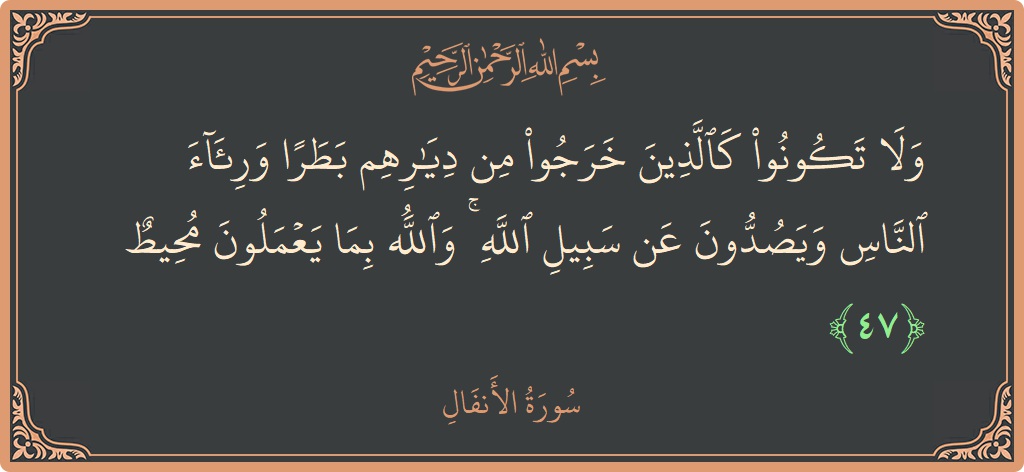 بِسْمِ اللَّهِ الرَّحْمَٰنِ الرَّحِيمِ
وَلَا تَكُونُوا۟ كَٱلَّذِينَ خَرَجُوا۟ مِن دِيَـٰرِهِم بَطَرًا وَرِئَآءَ
ٱلنَّاسِ وَيَصُدُّونَ عَن سَبِيلِ ٱللَّهِ ۚ وَٱللَّهُ بِمَا يَعْمَلُونَ مُحِيطٌ
﴿٤٧﴾
سُورَةُ الأَنفَالِ